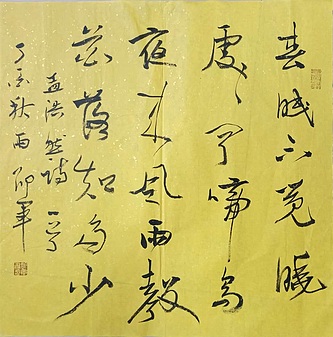 春眠不覺曉
處處聞啼鳥
夜来風雨聲
花落知多少
孟浩然詩一首
丁酉秋雨